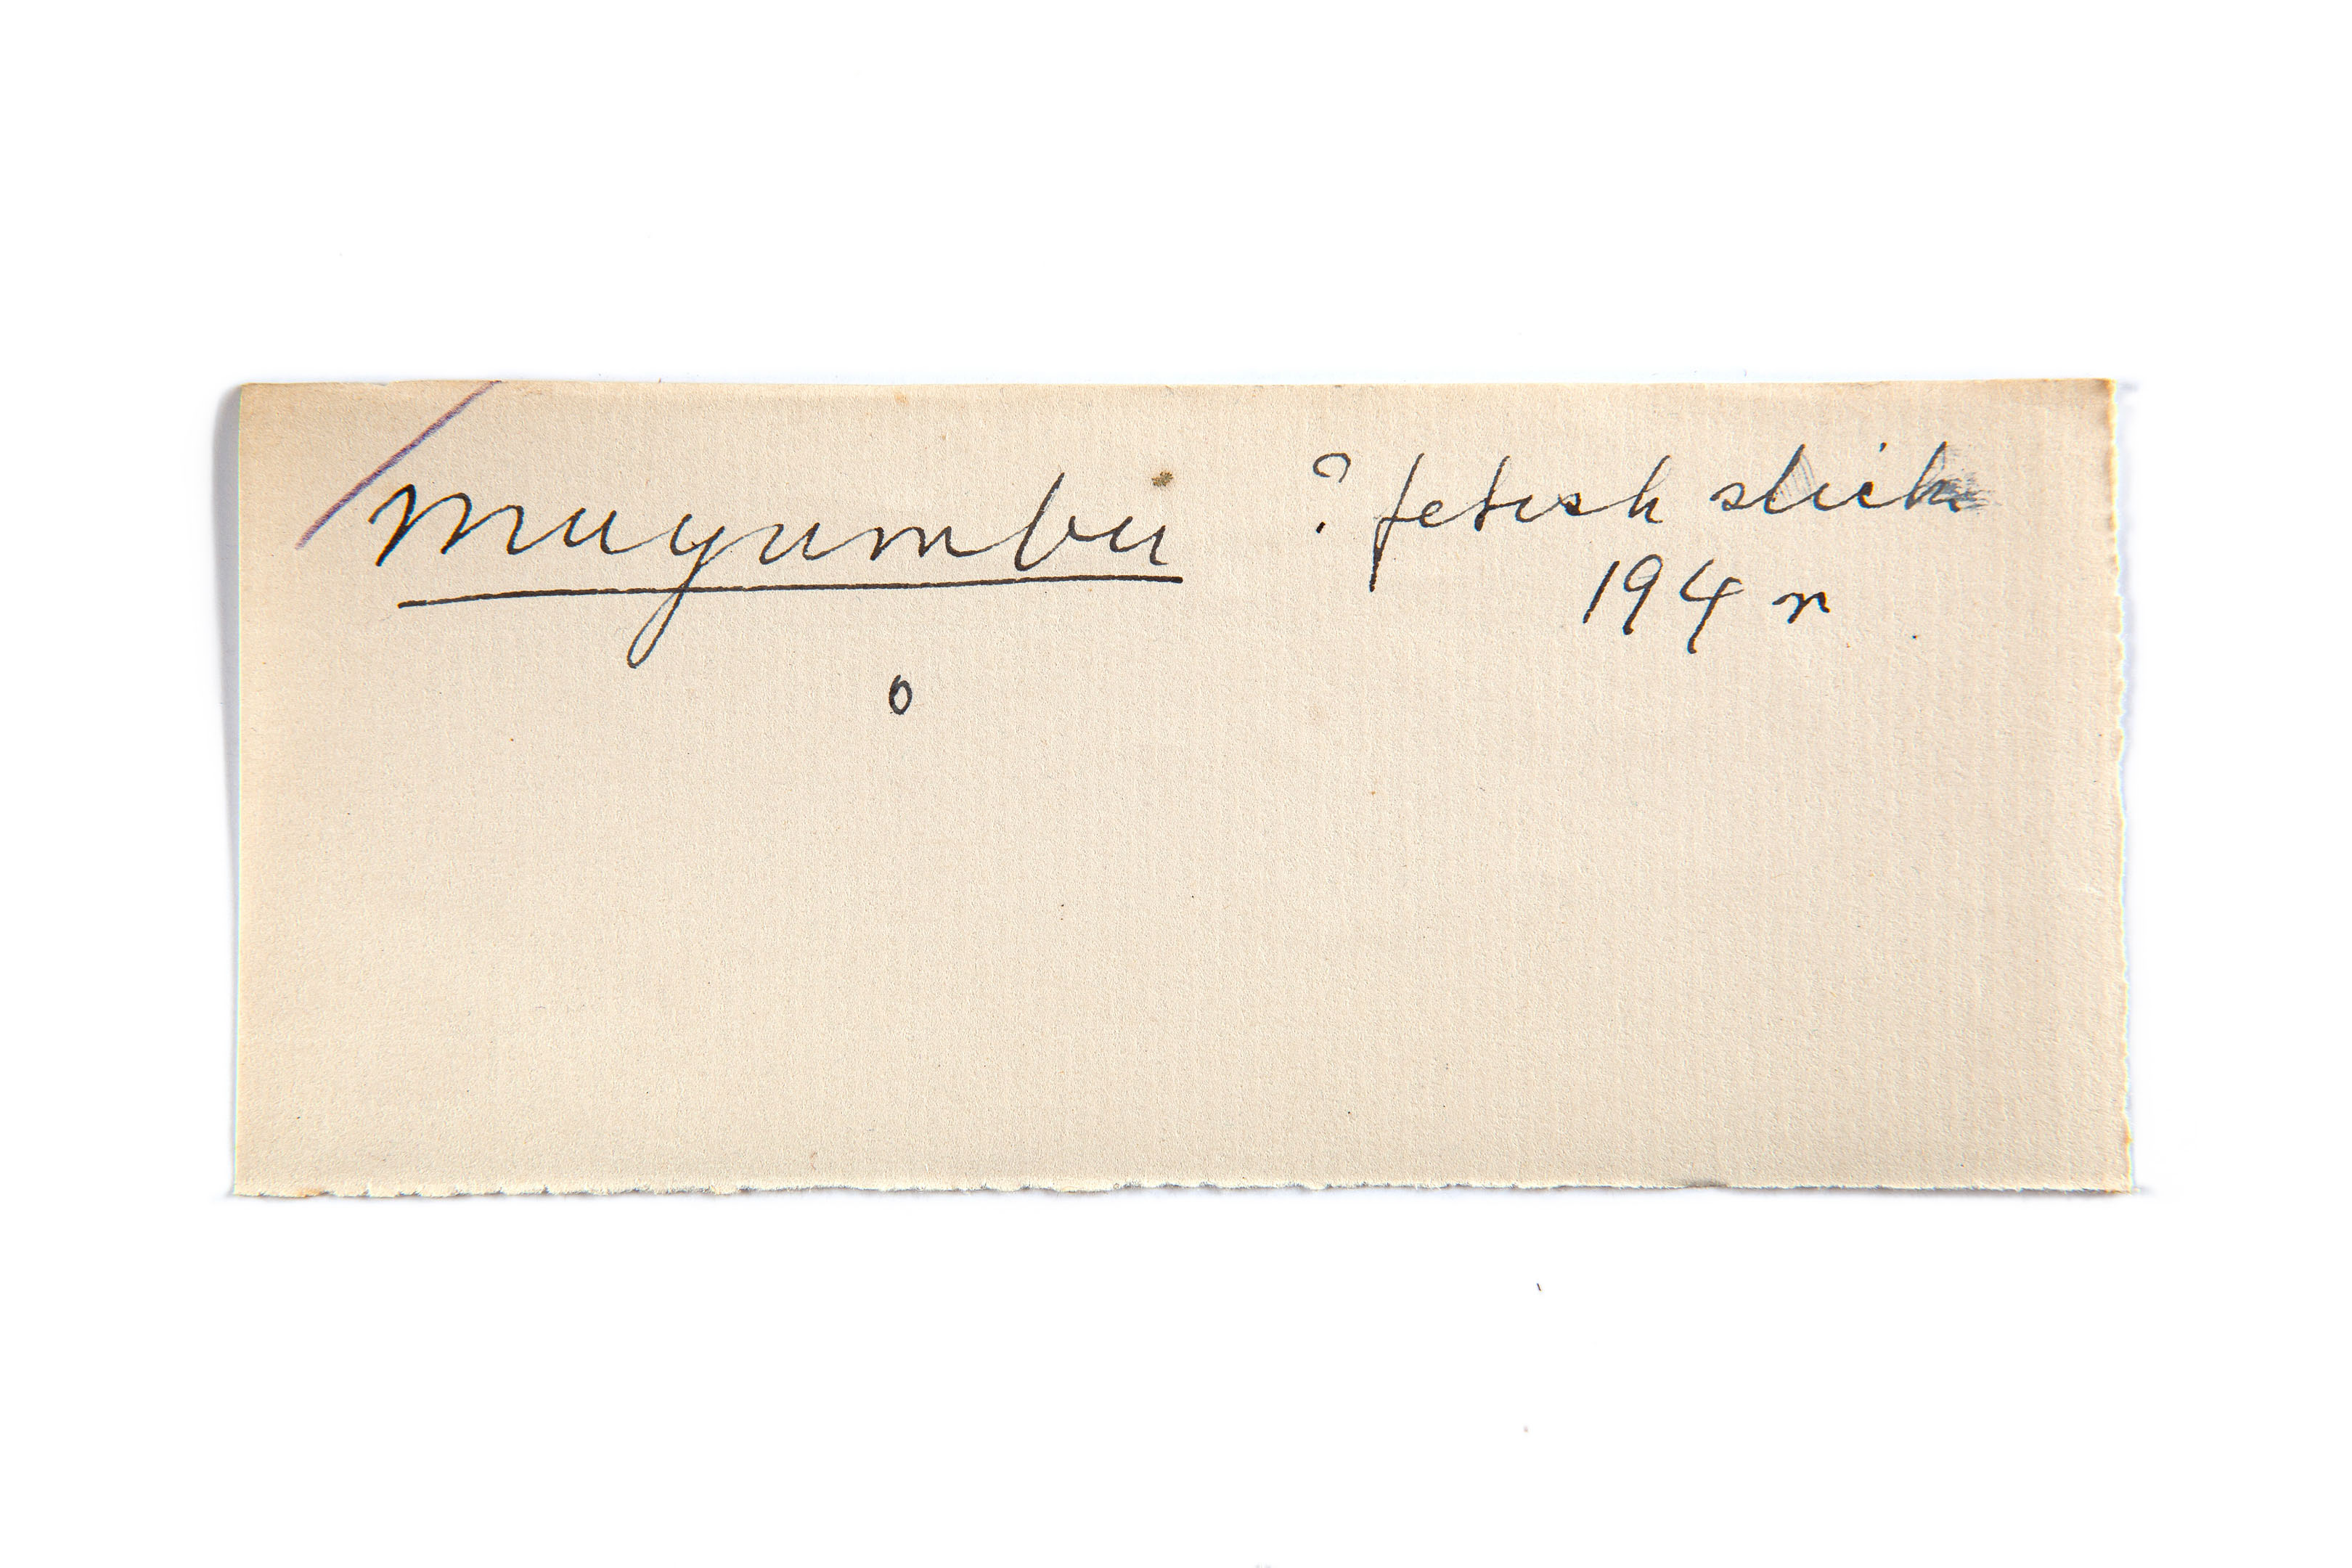 muyumbu ? fetish stick
194 r
o